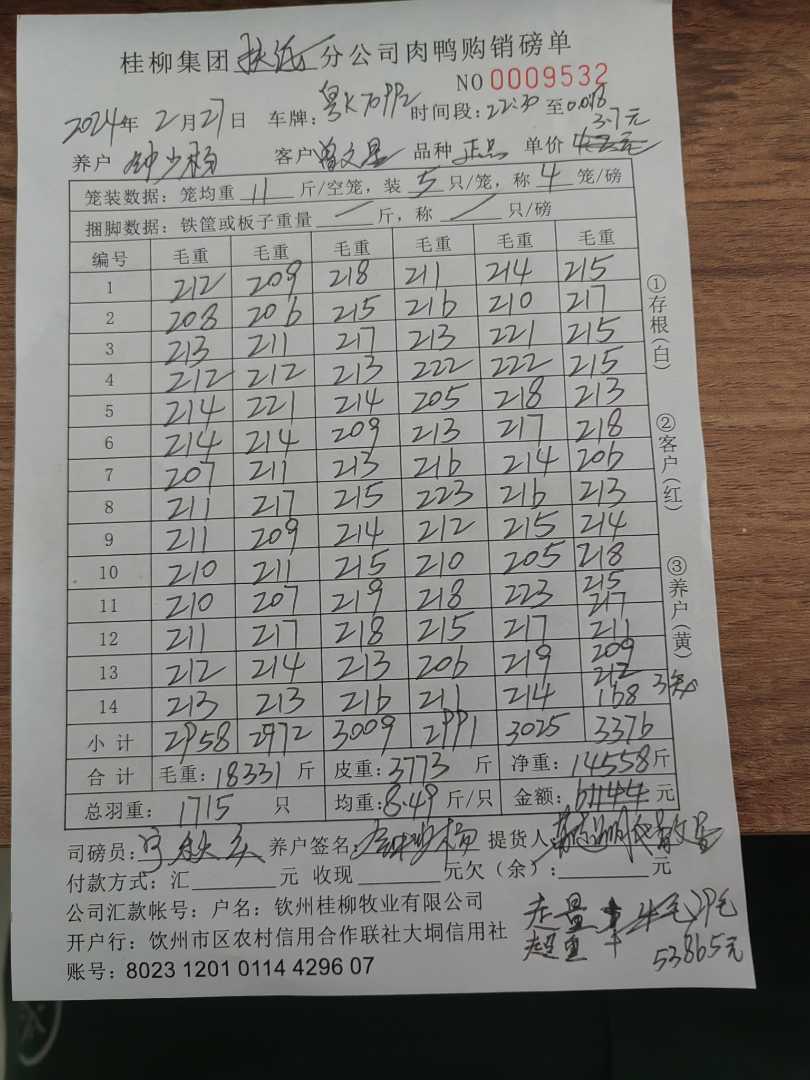 桂柳集团 分公司肉鸭购销磅单
NO 0009532
2024年 2月27日 车牌：粤K70PP2 时间段：22:30 至
3.7元
养户 钟少杨 客户 曾文星 品种 正品 单价
笼装数据：笼均重 11 斤/空笼，装 5 只/笼，称 4 笼/磅
捆脚数据：铁筐或板子重量 / 斤，称 / 只/磅
编号 毛重 毛重 毛重 毛重 毛重 毛重
1 212 209 218 211 214 215
2 208 206 215 216 210 217
3 213 211 217 213 221 215
4 212 212 213 222 222 215
5 214 221 214 205 218 213
6 214 214 209 213 217 218
7 207 211 213 216 214 206
8 211 217 215 223 216 213
9 211 209 214 212 215 214
10 210 211 215 210 205 218
11 210 207 219 218 223 215 217
12 211 217 218 215 217 211
13 212 214 213 206 219 209 212
14 213 213 216 211 214 168 3笼
小计 2958 2972 3009 2991 3025 3376
合计 毛重：18331 斤 皮重：3773 斤 净重：14558斤
总羽重： 1715 只 均重：8.49 斤/只 金额：61144 元
司磅员： 养户签名：钟少杨 提货人：
付款方式：汇 元 收现 元欠（余）： 元
公司汇款帐号：户名：钦州桂柳牧业有限公司
开户行：饮州市区农村信用合作联社大垌信用社
账号：8023 1201 0114 4296 07
走量
超重
53865元
①存根（白）
②客户（红）
③养户（黄）